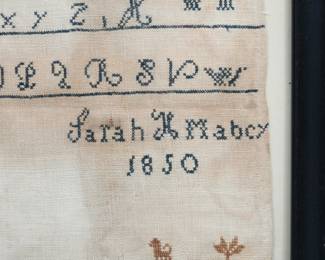 x y z
P Q R S V W
Sarah H Mabcy
1850